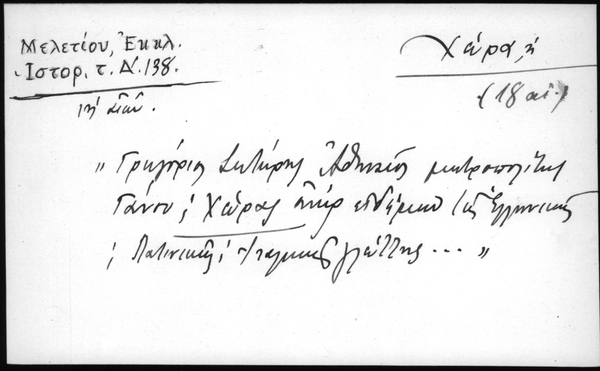 Μελετίου, Ἐκκλ.
Ἱστορ. τ. Δ΄. 138.
Χώρα, ἡ
(18 αἰ.)
ιη΄ αἰών.
„ Γρηγόριος Σωτήρης Ἀθηναῖος μητροπολίτης
Γάνου καὶ Χώρας ἀνὴρ εἰδήμων τῆς Ἑλληνικῆς
καὶ Λατινικῆς καὶ Ἰταλικῆς γλώττης ... „